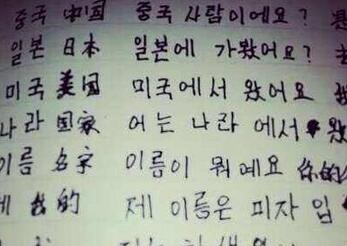 중국 中国 중국 사람이에요?
일본 日本 일본에 가봤어요?
미국 美国 미국에서 왔어요
나라 国家 어느 나라에서 왔어요
이름 名字 이름이 뭐예요 你的
제 我的 제 이름은 미자 입